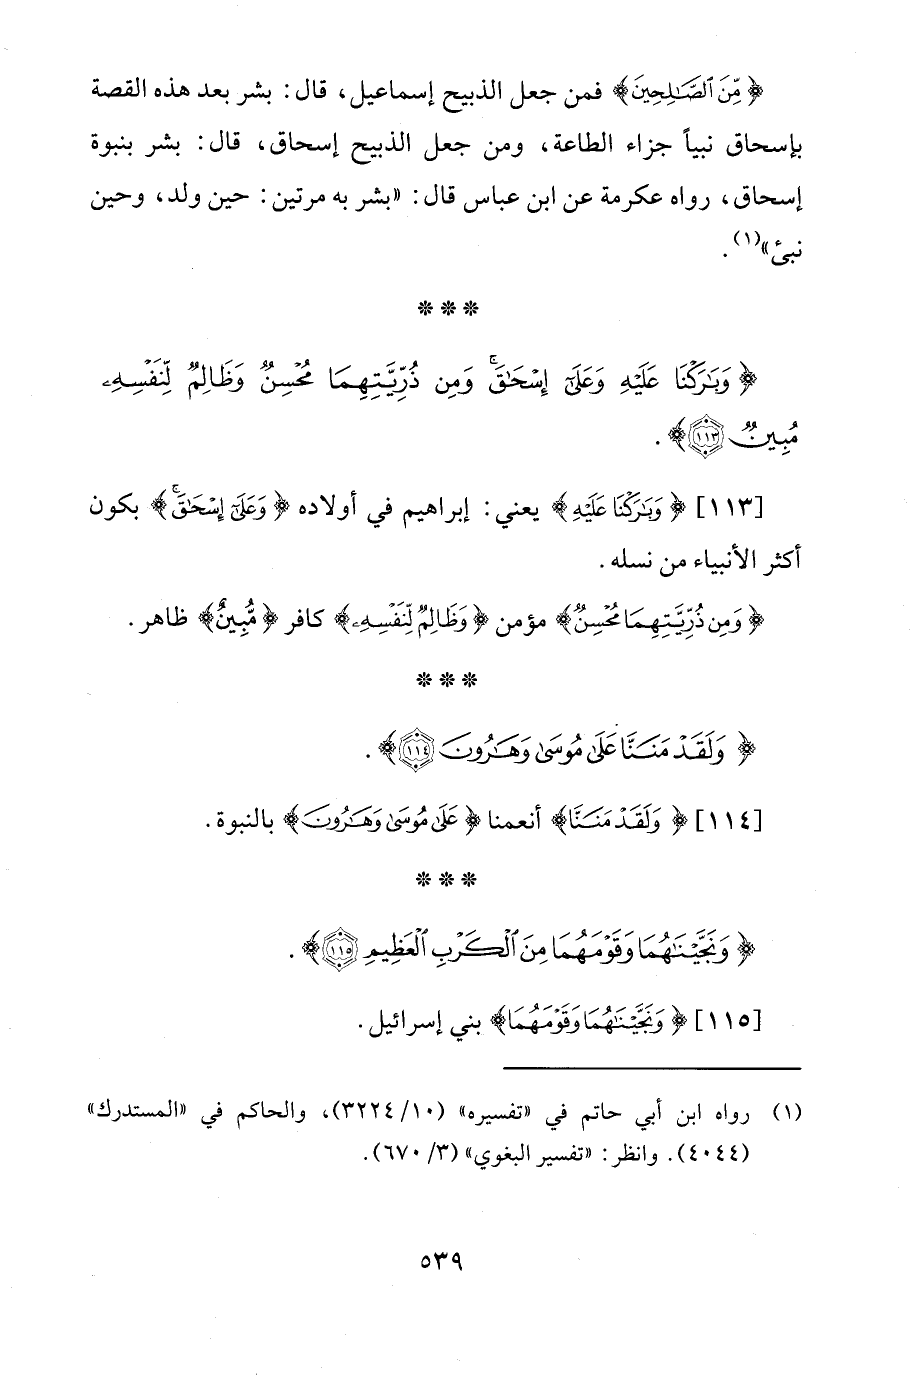 ﴿مِّنَ ٱلصَّٰلِحِينَ﴾ فمن جعل الذبيح إسماعيل، قال: بشر بعد هذه القصة
بإسحاق نبياً جزاء الطاعة، ومن جعل الذبيح إسحاق، قال: بشر بنبوة
إسحاق، رواه عكرمة عن ابن عباس قال: «بشر به مرتين: حين ولد، وحين
نبئ»(١).
*** 
﴿وَبَٰرَكْنَا عَلَيْهِ وَعَلَىٰٓ إِسْحَٰقَۚ وَمِن ذُرِّيَّتِهِمَا مُحْسِنٌ وَظَالِمٌ لِّنَفْسِهِۦ
مُبِينٌ ١١٣﴾.
[١١٣] ﴿وَبَٰرَكْنَا عَلَيْهِ﴾ يعني: إبراهيم في أولاده ﴿وَعَلَىٰٓ إِسْحَٰقَۚ﴾ بكون
أكثر الأنبياء من نسله.
﴿وَمِن ذُرِّيَّتِهِمَا مُحْسِنٌ﴾ مؤمن ﴿وَظَالِمٌ لِّنَفْسِهِۦ﴾ كافر ﴿مُّبِينٌ﴾ ظاهر.
***
﴿وَلَقَدْ مَنَنَّا عَلَىٰ مُوسَىٰ وَهَٰرُونَ ١١٤﴾.
[١١٤] ﴿وَلَقَدْ مَنَنَّا﴾ أنعمنا ﴿عَلَىٰ مُوسَىٰ وَهَٰرُونَ﴾ بالنبوة.
***
﴿وَنَجَّيْنَٰهُمَا وَقَوْمَهُمَا مِنَ ٱلْكَرْبِ ٱلْعَظِيمِ ١١٥﴾.
[١١٥] ﴿وَنَجَّيْنَٰهُمَا وَقَوْمَهُمَا﴾ بني إسرائيل.
(١) رواه ابن أبي حاتم في «تفسيره» (١٠/ ٣٢٢٤)، والحاكم في «المستدرك»
(٤٠٤٤). وانظر: «تفسير البغوي» (٣/ ٦٧٠).
٥٣٩